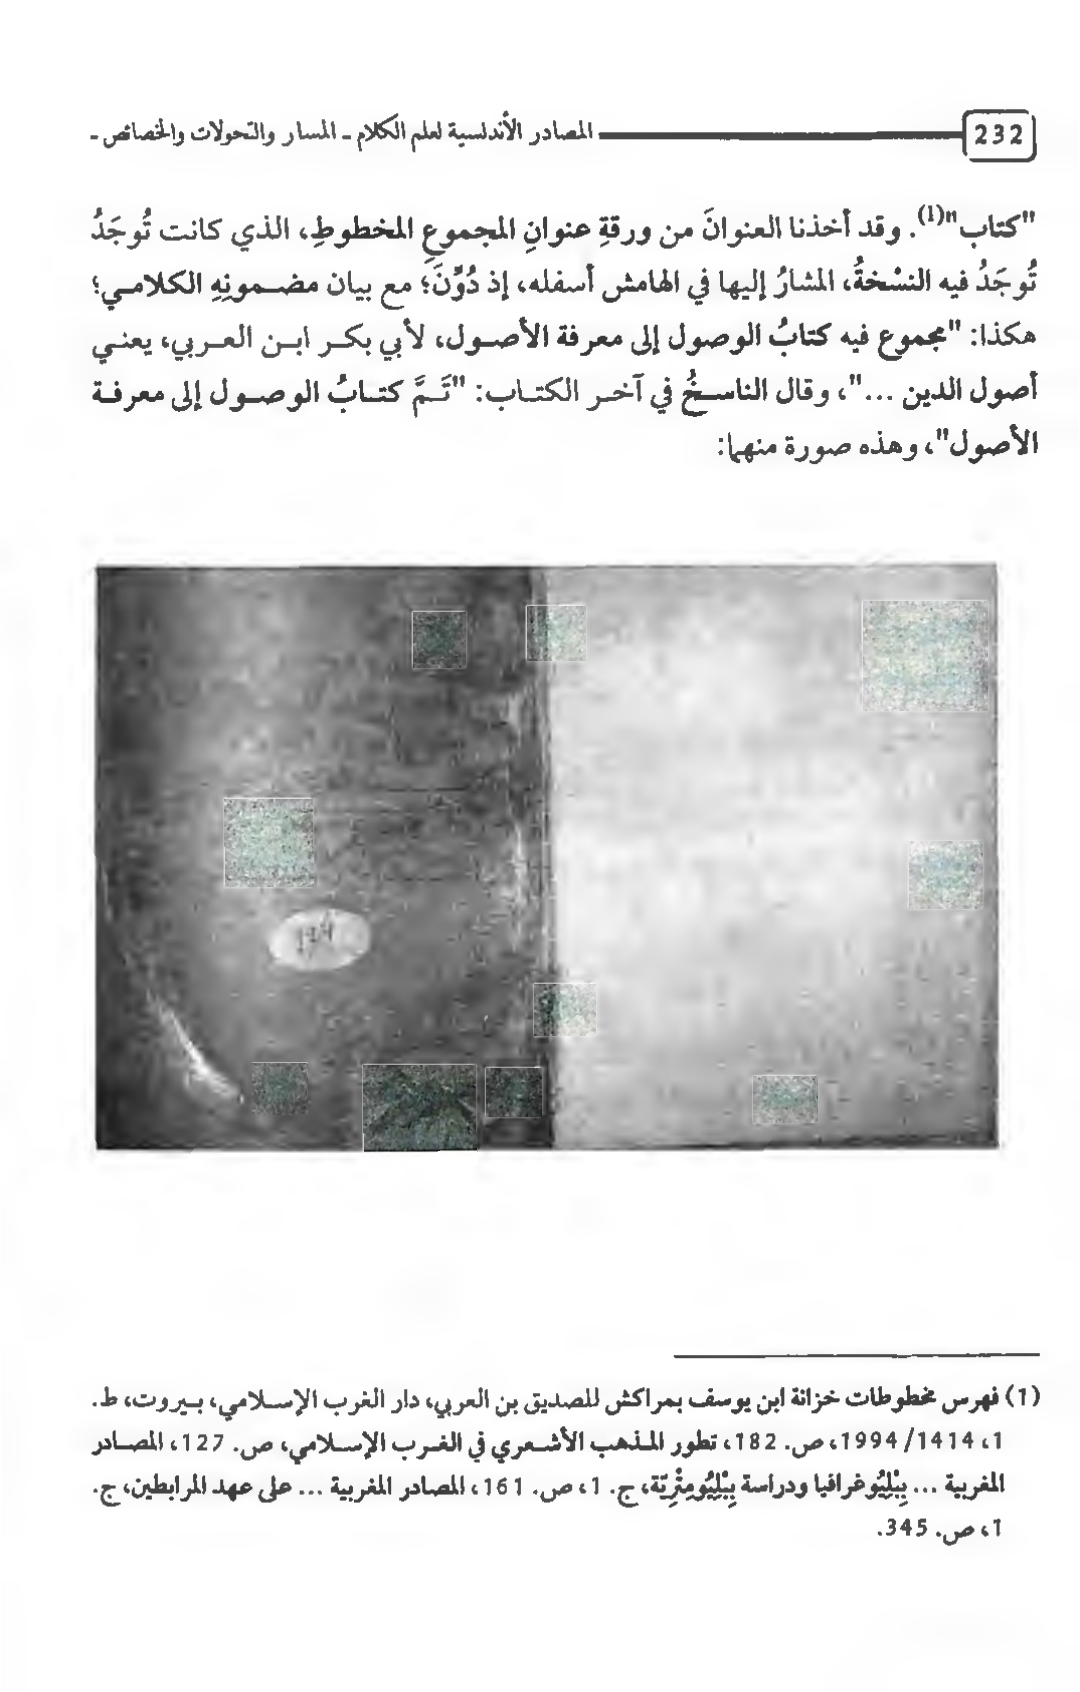 232 المصادر الأندلسية لعلم الكلام ـ المسار والتحولات والخصائص ـ
"كتاب"(1). وقد أخذنا العنوانَ من ورقةِ عنوانِ المجموعِ المخطوطِ، الذي كانت تُوجَدُ
تُوجَدُ فيه النسْخةُ، المشارُ إليها في الهامش أسفله، إذ دُوِّنَ؛ مع بيان مضمونِهِ الكلامي؛
هكذا: "مجموع فيه كتابُ الوصول إلى معرفة الأصول، لأبي بكر ابن العربي، يعني
أصول الدين ..."، وقال الناسخُ في آخر الكتاب: "تَمَّ كتابُ الوصول إلى معرفة
الأصول"، وهذه صورة منهما:
(1) فهرس مخطوطات خزانة ابن يوسف بمراكش للصديق بن العربي، دار الغرب الإسلامي، بيروت، ط.
1، 1414/ 1994، ص. 182، تطور المذهب الأشعري في الغرب الإسلامي، ص. 127، المصادر
المغربية ... بِبْلِيُوغرافيا ودراسة بِبْلِيُومِتْرِيّة، ج. 1، ص. 161، المصادر المغربية ... على عهد المرابطين، ج.
1، ص. 345.